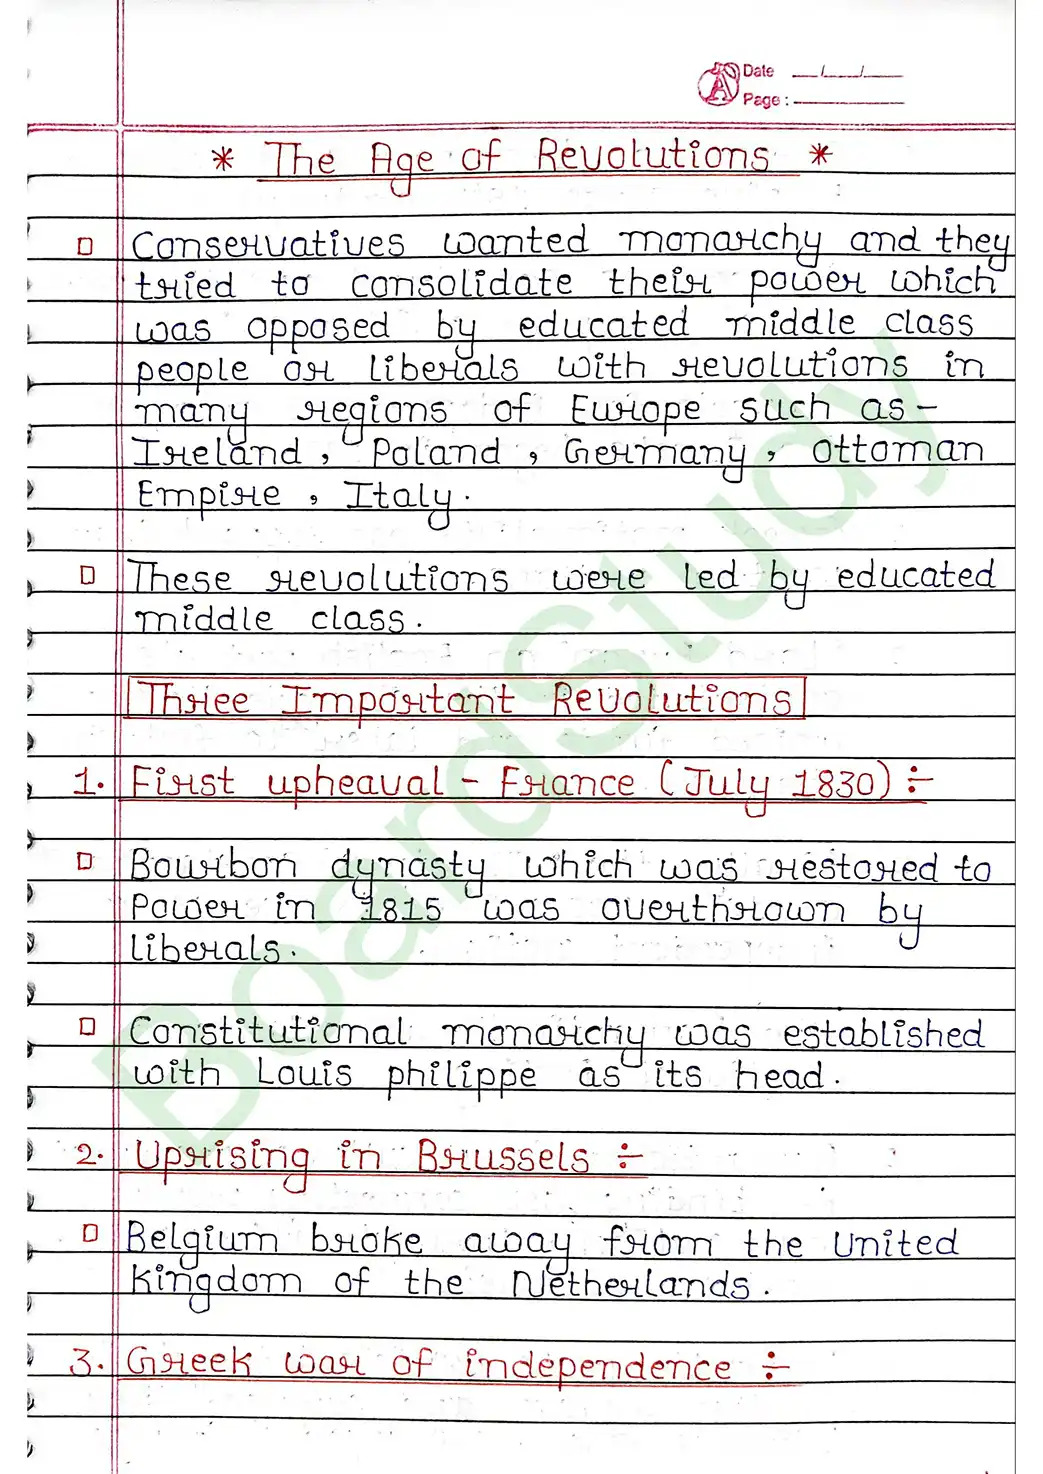 Date __/__/__
Page : ______
* The Age of Revolutions *
Conservatives wanted monarchy and they
tried to consolidate their power which
was opposed by educated middle class
people or liberals with revolutions in
many regions of Europe such as -
Ireland, Poland, Germany, Ottoman
Empire, Italy.
These revolutions were led by educated
middle class.
Three Important Revolutions
1. First upheaval - France (July 1830) ÷
Bourbon dynasty which was restored to
Power in 1815 was overthrown by
liberals.
Constitutional monarchy was established
with Louis philippe as its head.
2. Uprising in Brussels ÷
Belgium broke away from the United
kingdom of the Netherlands.
3. Greek war of independence ÷
BoardStudy